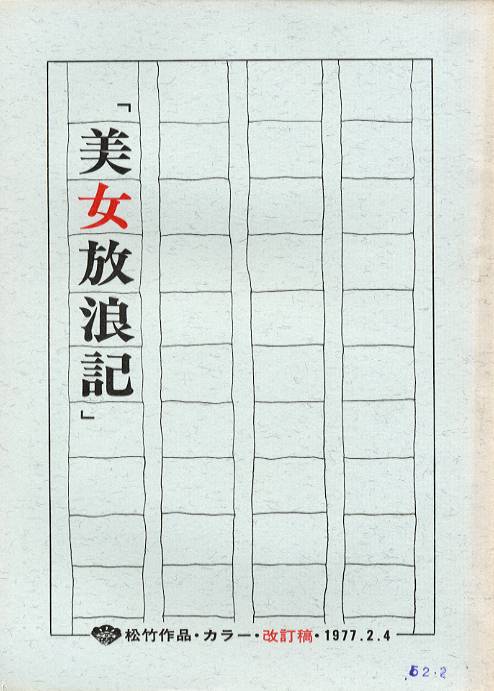 「美女放浪記」
松竹作品・カラー・改訂稿・1977.2.4
52.2